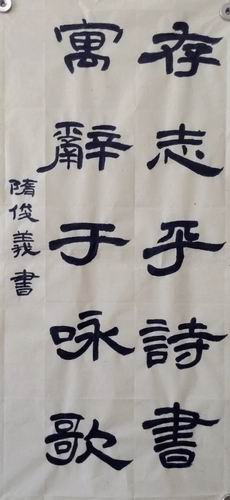 存志乎詩書
寓辭于咏歌
隋俊義書